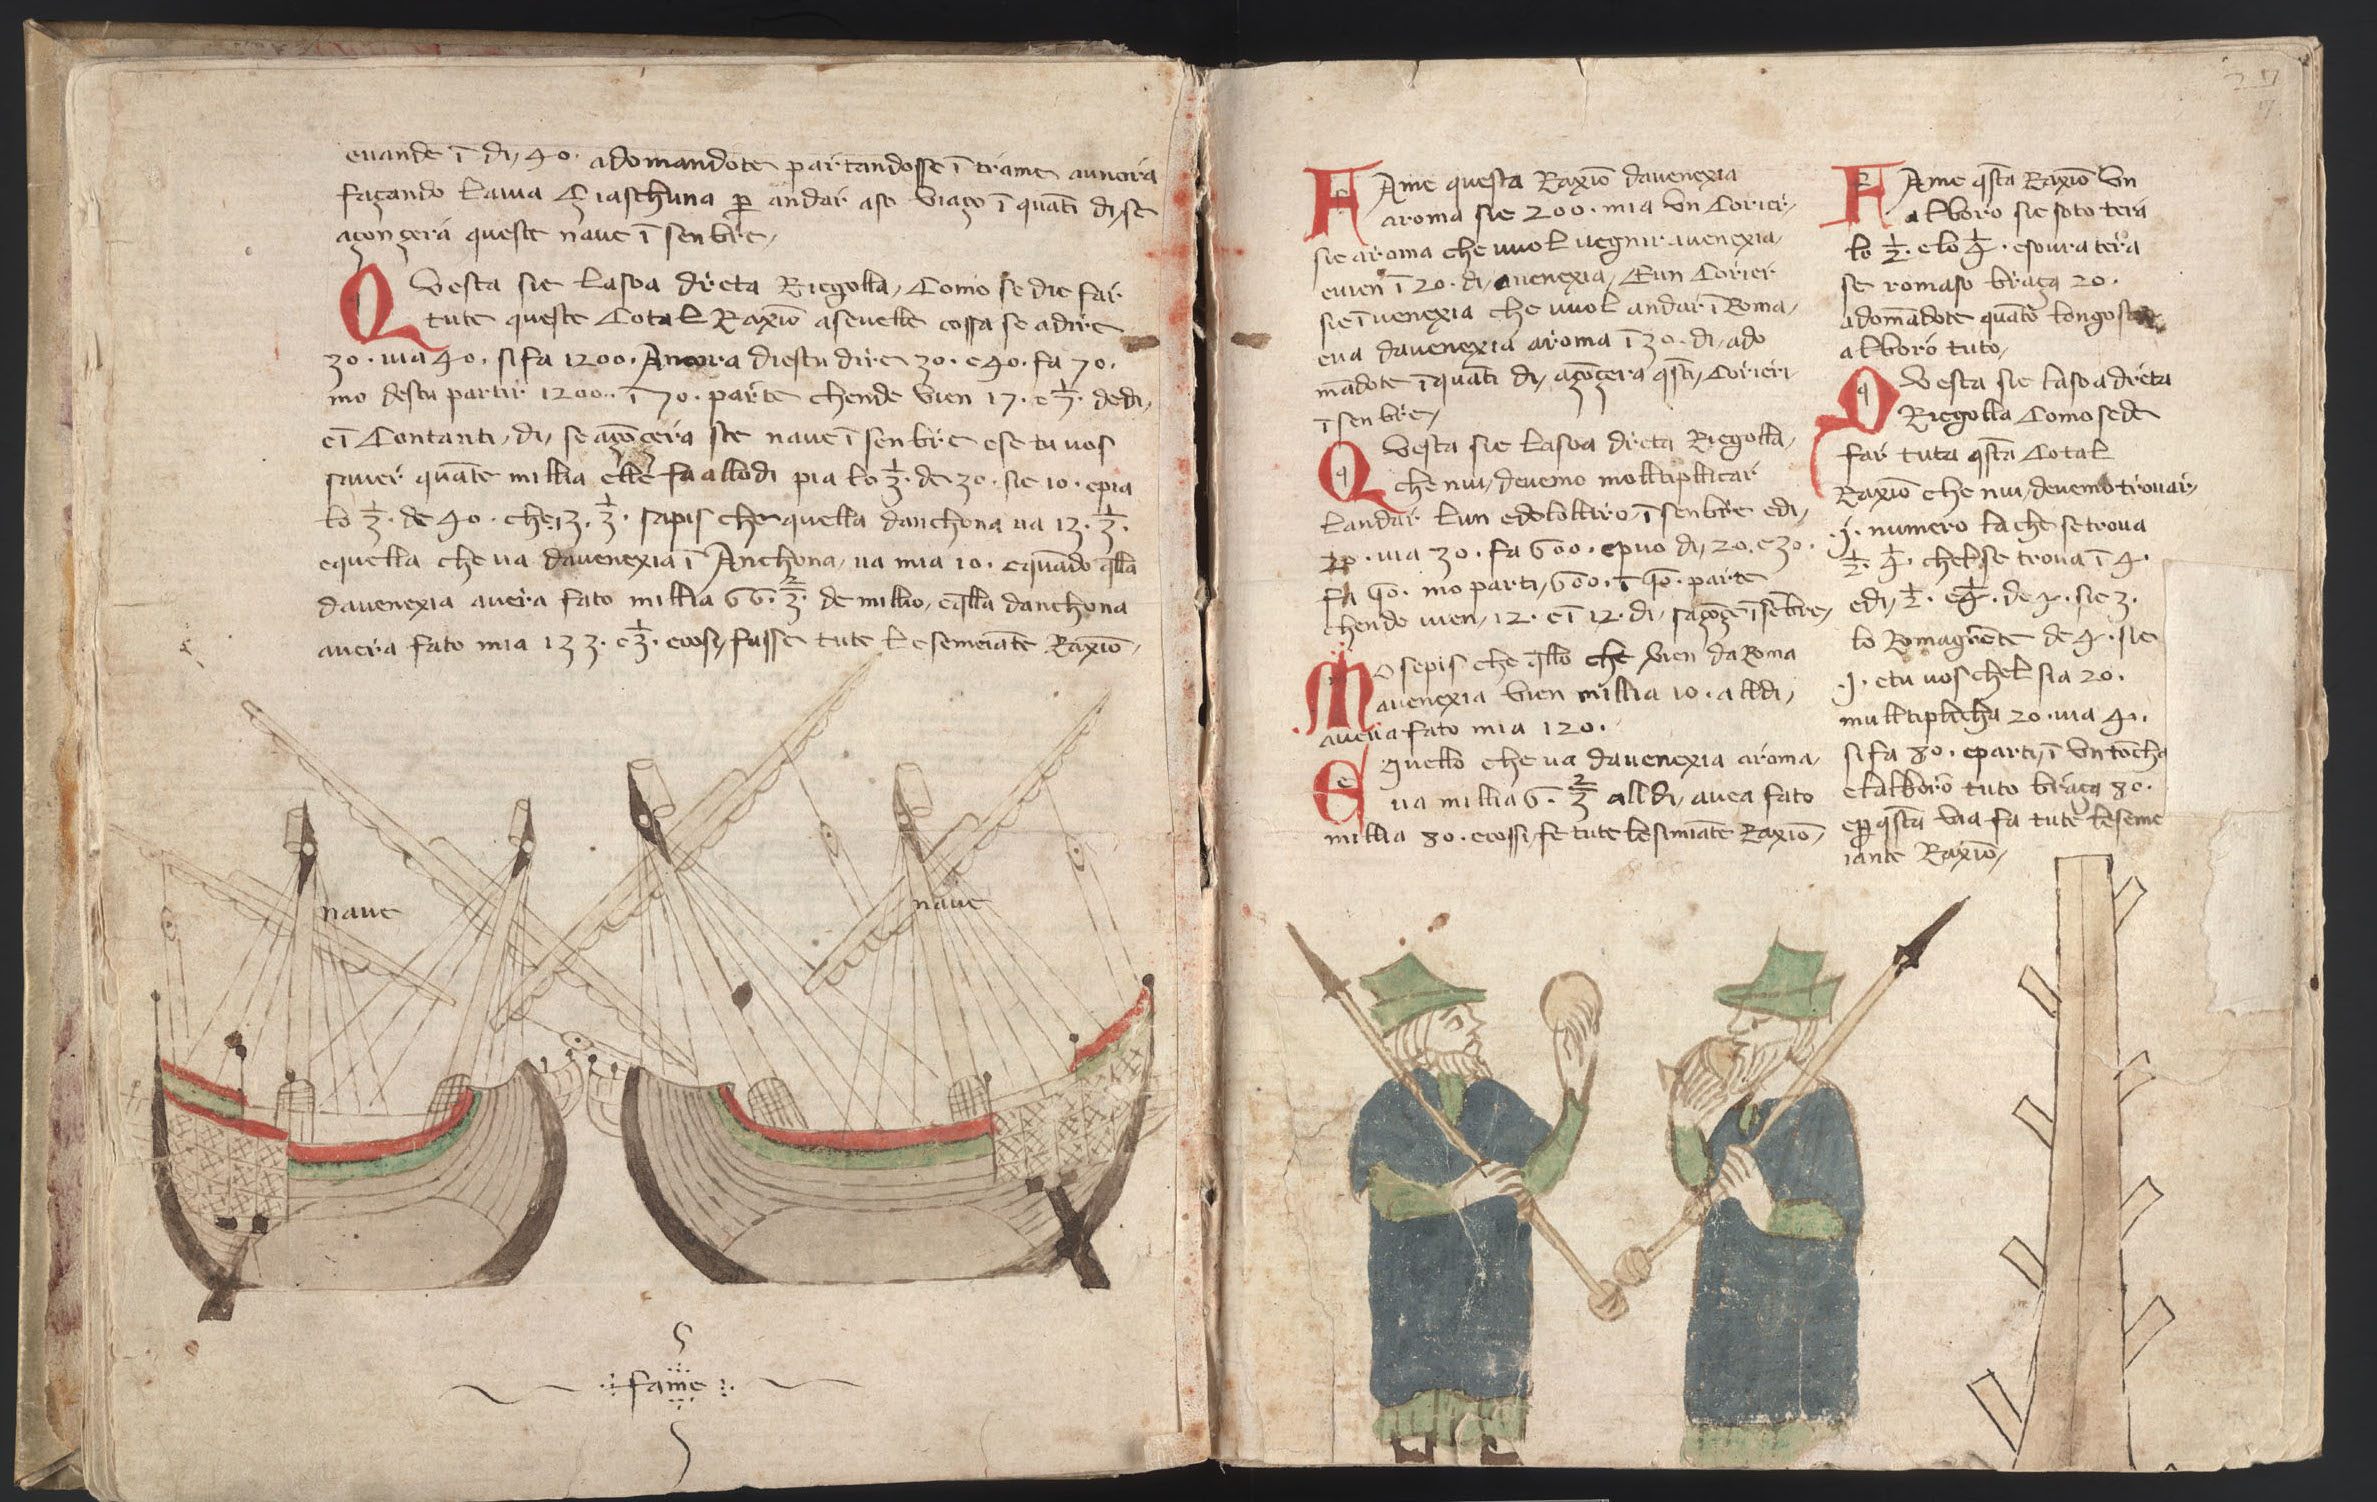 evande ī di, 40. adomandote partandosse ī trame aunora
façando Lavia Ziaschuna ꝑ andar aso viaço ī quāti di, se
açonçera queste nave ī senbre,
Questa sie Lasoa dreta Riegolla, Como se die far
tute queste Cotal Raxiō asevelle cossa se adire
30. via 40. si fa 1200. Ancora diestu dire 30. e 40. fa 70.
mo destu partir 1200. ī 70. parte chende vien 17. e 1/7. dedi,
e ī Contanti, di, se açōçera ste nave ī senbre e se tu vos
saver quāte millia elle fa allo di pia lo 1/3. de 30. sie 10. epia
lo 1/3. de 40. che 13. 1/3. sapis che quella danchona va 13. 1/3.
equella che va davenexia ī Anchona, va mia 10. equādo qlla
davenexia avera fato millia 66. 2/3. de millio, eqlla danchona
avera fato mia 133. e 1/3. ecosi, fasse tute Le semeiāte Raxiō,
nave
nave
fame
17
FAme questa Raxiō davenexia
aroma sie 200. mia Vn Corier,
sie aroma che vuol vegnir avenexia,
evien ī 20. di, avenexia, Eun Corier
sie ī venexia che vuol andar ī Roma,
eva davenexia aroma ī 30. di, ado
mādote ī quāti di, açōçera qsti, Corieri
ī senbre,
Questa sie Lasoa dreta Riegolla,
che nui, devemo molltipllicar
Landar Lun edelolltro, ī senbre edi,
20. via 30. fa 600. epuo di, 20. e 30.
fa 50. mo parti, 600. ī 50. parte
chende vien, 12. e ī 12. di, saçōçe ī sēbre,
Mo sepis che qllo che vien da Roma
avenexia vien millia 10. alldi,
avera fato mia 120.
E quello che va davenexia aroma,
va millia 6. 2/3 alldi, avea fato
millia 80. ecossi, fe tute le simiāte Raxiō,
FAme qsta Raxiō Vn
alboro sie soto tera
lo 1/2. elo 1/4. esovra tera
se romaso braça 20.
adomādote quāto longo
alboro tuto,
Questa sie lasoa dreta
Riegolla Como se de
far tuta qsta Cotal
Raxiō che nui, devemo trovar,
.j. numero la che se trova
1/2. 1/4. chel se trova ī 4.
edi, 1/2. e 1/4. de 4. sie 3.
lo Romagnēte de 4. sie
.j. etu vos chel sia 20.
mulltiplicha 20. via 4.
si fa 80. eparti, ī Vn
elalboro tuto braça 80.
eꝑ qsta via fa tute le seme
iante Raxiō,